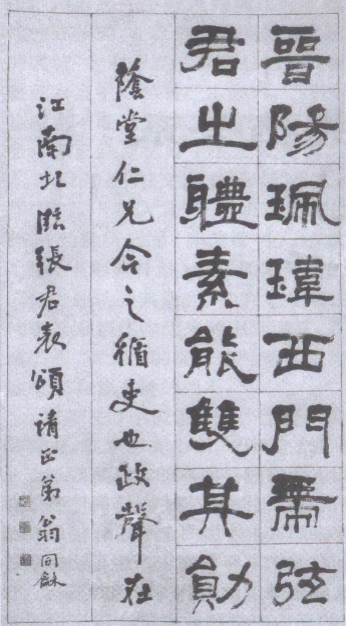 晉陽珮瑋西門帶弦
君之體素能雙其勛
蔭堂仁兄今之循吏也政聲在
江南北臨張君表頌請正弟翁同龢